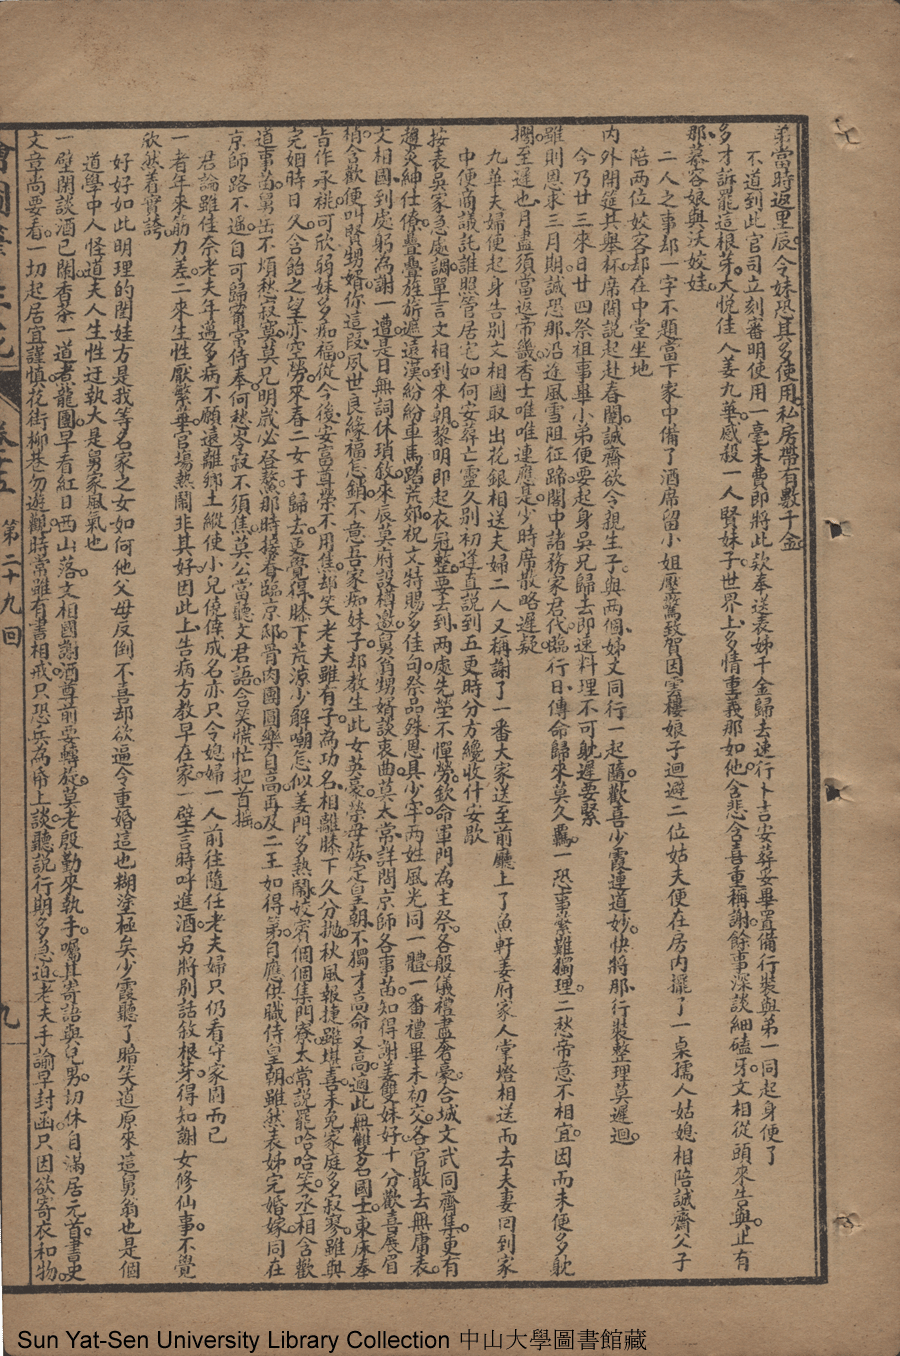 弟當時返里辰今妹恐其多使用私房帶有數千金
不道到此官司立刻審明使用一毫未費即將此欵奉送表姊千金歸去速行卜吉安葬妥畢置備行裝與弟一同起身便了
多才訴罷這根芽大悅佳人姜九華感殺一人賢妹子世界上多情重義那如他含悲含喜重稱謝餘事深談細磕牙文相從頭來告與止有
那慕容娘與沃姣娃
二人之事却一字不題當下家中備了酒席留小姐壓驚致賀因雲樓娘子迴避二位姑夫便在房內擺了一桌孺人姑媳相陪誠齋父子
陪兩位姣客却在中堂坐地
內外開筵共舉杯席間說起赴春闈誠齋欲令親生子與兩個姊丈同行一起隨歡喜少霞連道妙快將那行裝整理莫遲迴
今乃廿三來日廿四祭祖事畢小弟便要起身吳兄歸去即速料理不可躭遲要緊
雖則恩求三月期誠恐那沿途風雪阻征蹄閣中諸務家君代臨行日傳命歸來莫久羈一恐事繁難獨理二愁帝意不相宜因而未便多躭
擱至遲也月盡須當返帝畿香士唯唯連應是少時席散略遲疑
九華夫婦便起身告別文相國取出花銀相送夫婦二人又稱謝了一番大家送至前廳上了魚軒姜府家人掌燈相送而去夫妻回到家
中便商議託誰照管居宅如何安葬亡靈久別初逢直説到五更時分方纔收什安歇
按表吳家急處調單言文相到來朝黎明即起衣冠整要去到兩處先塋不憚勞欽命軍門為主祭各般儀禮盡奢豪合城文武同齊集更有
趨炎紳仕僚疊疊旌旂遮遠漢紛紛車馬踏荒郊祝文特賜多佳句祭品殊恩具少牢兩姓風光同一體一番禮畢未初交各官散去無庸表
文相國到處躬為謝一遭是日無詞休瑣敘來辰莫府設樽邀舅翁甥婿談衷曲莫太常詳問京師各事苗知得謝姜雙妹好十分歡喜展眉
梢含歡便叫賢甥婿你這段夙世良緣福怎銷不意吾家痴妹子却教生此女英豪榮母族定皇朝不獨才高命又高適此無雙名國士東床奉
旨作承祧可欣弱妹多知福從今後安富尊榮不用焦却笑老夫雖有子為功名相離膝下久分拋秋風報捷雖堪喜未免家庭多寂寥雖與
完姻時日久含飴之望亦空勞來春二女于歸去更覺得膝下荒涼少解嘲怎似姜門多熱鬧姣賓個個集門寮太常說罷哈哈笑丞相含歡
道事苗舅岳不須愁寂寞莫兄明歲必登鰲那時接眷臨京邸骨肉團圓樂自高再及二王如得第自應供職侍皇朝雖然表姊完婚嫁同在
京師路不遥自可歸甯常侍奉何愁岑寂不須焦莫公當聽文君語含笑慌忙把首搖
君論雖佳奈老夫年邁多病不願遠離鄉土縱使小兒僥倖成名亦只令媳婦一人前往隨任老夫婦只仍看守家園而已
一者年來筋力差二來生性厭繁華官場熱鬧非其好因此上告病方教早在家一壁言時呼進酒另將別話敘根芽得知謝女修仙事不覺
欣然着實誇
好好如此明理的閨娃方是我等名家之女如何他父母反倒不喜却欲逼令重婚這也糊塗極矣少霞聽了暗笑道原來這舅翁也是個
道學中人怪道夫人生性迂執大是舅家風氣也
一壁閑談酒已闌香茶一道煮龍團早看紅日西山落文相國謝酒尊前要轉旋莫老殷勤來執手囑其寄語與兒男切休自滿居元首書史
文章尚要看一切起居宜謹慎花街柳巷勿遊觀時常雖有書相戒只恐兵為帋上談聽説行期多急迫老夫手諭早封函只因欲寄衣和物
第二十九回
九
Sun Yat-Sen University Library Collection 中山大學圖書館藏